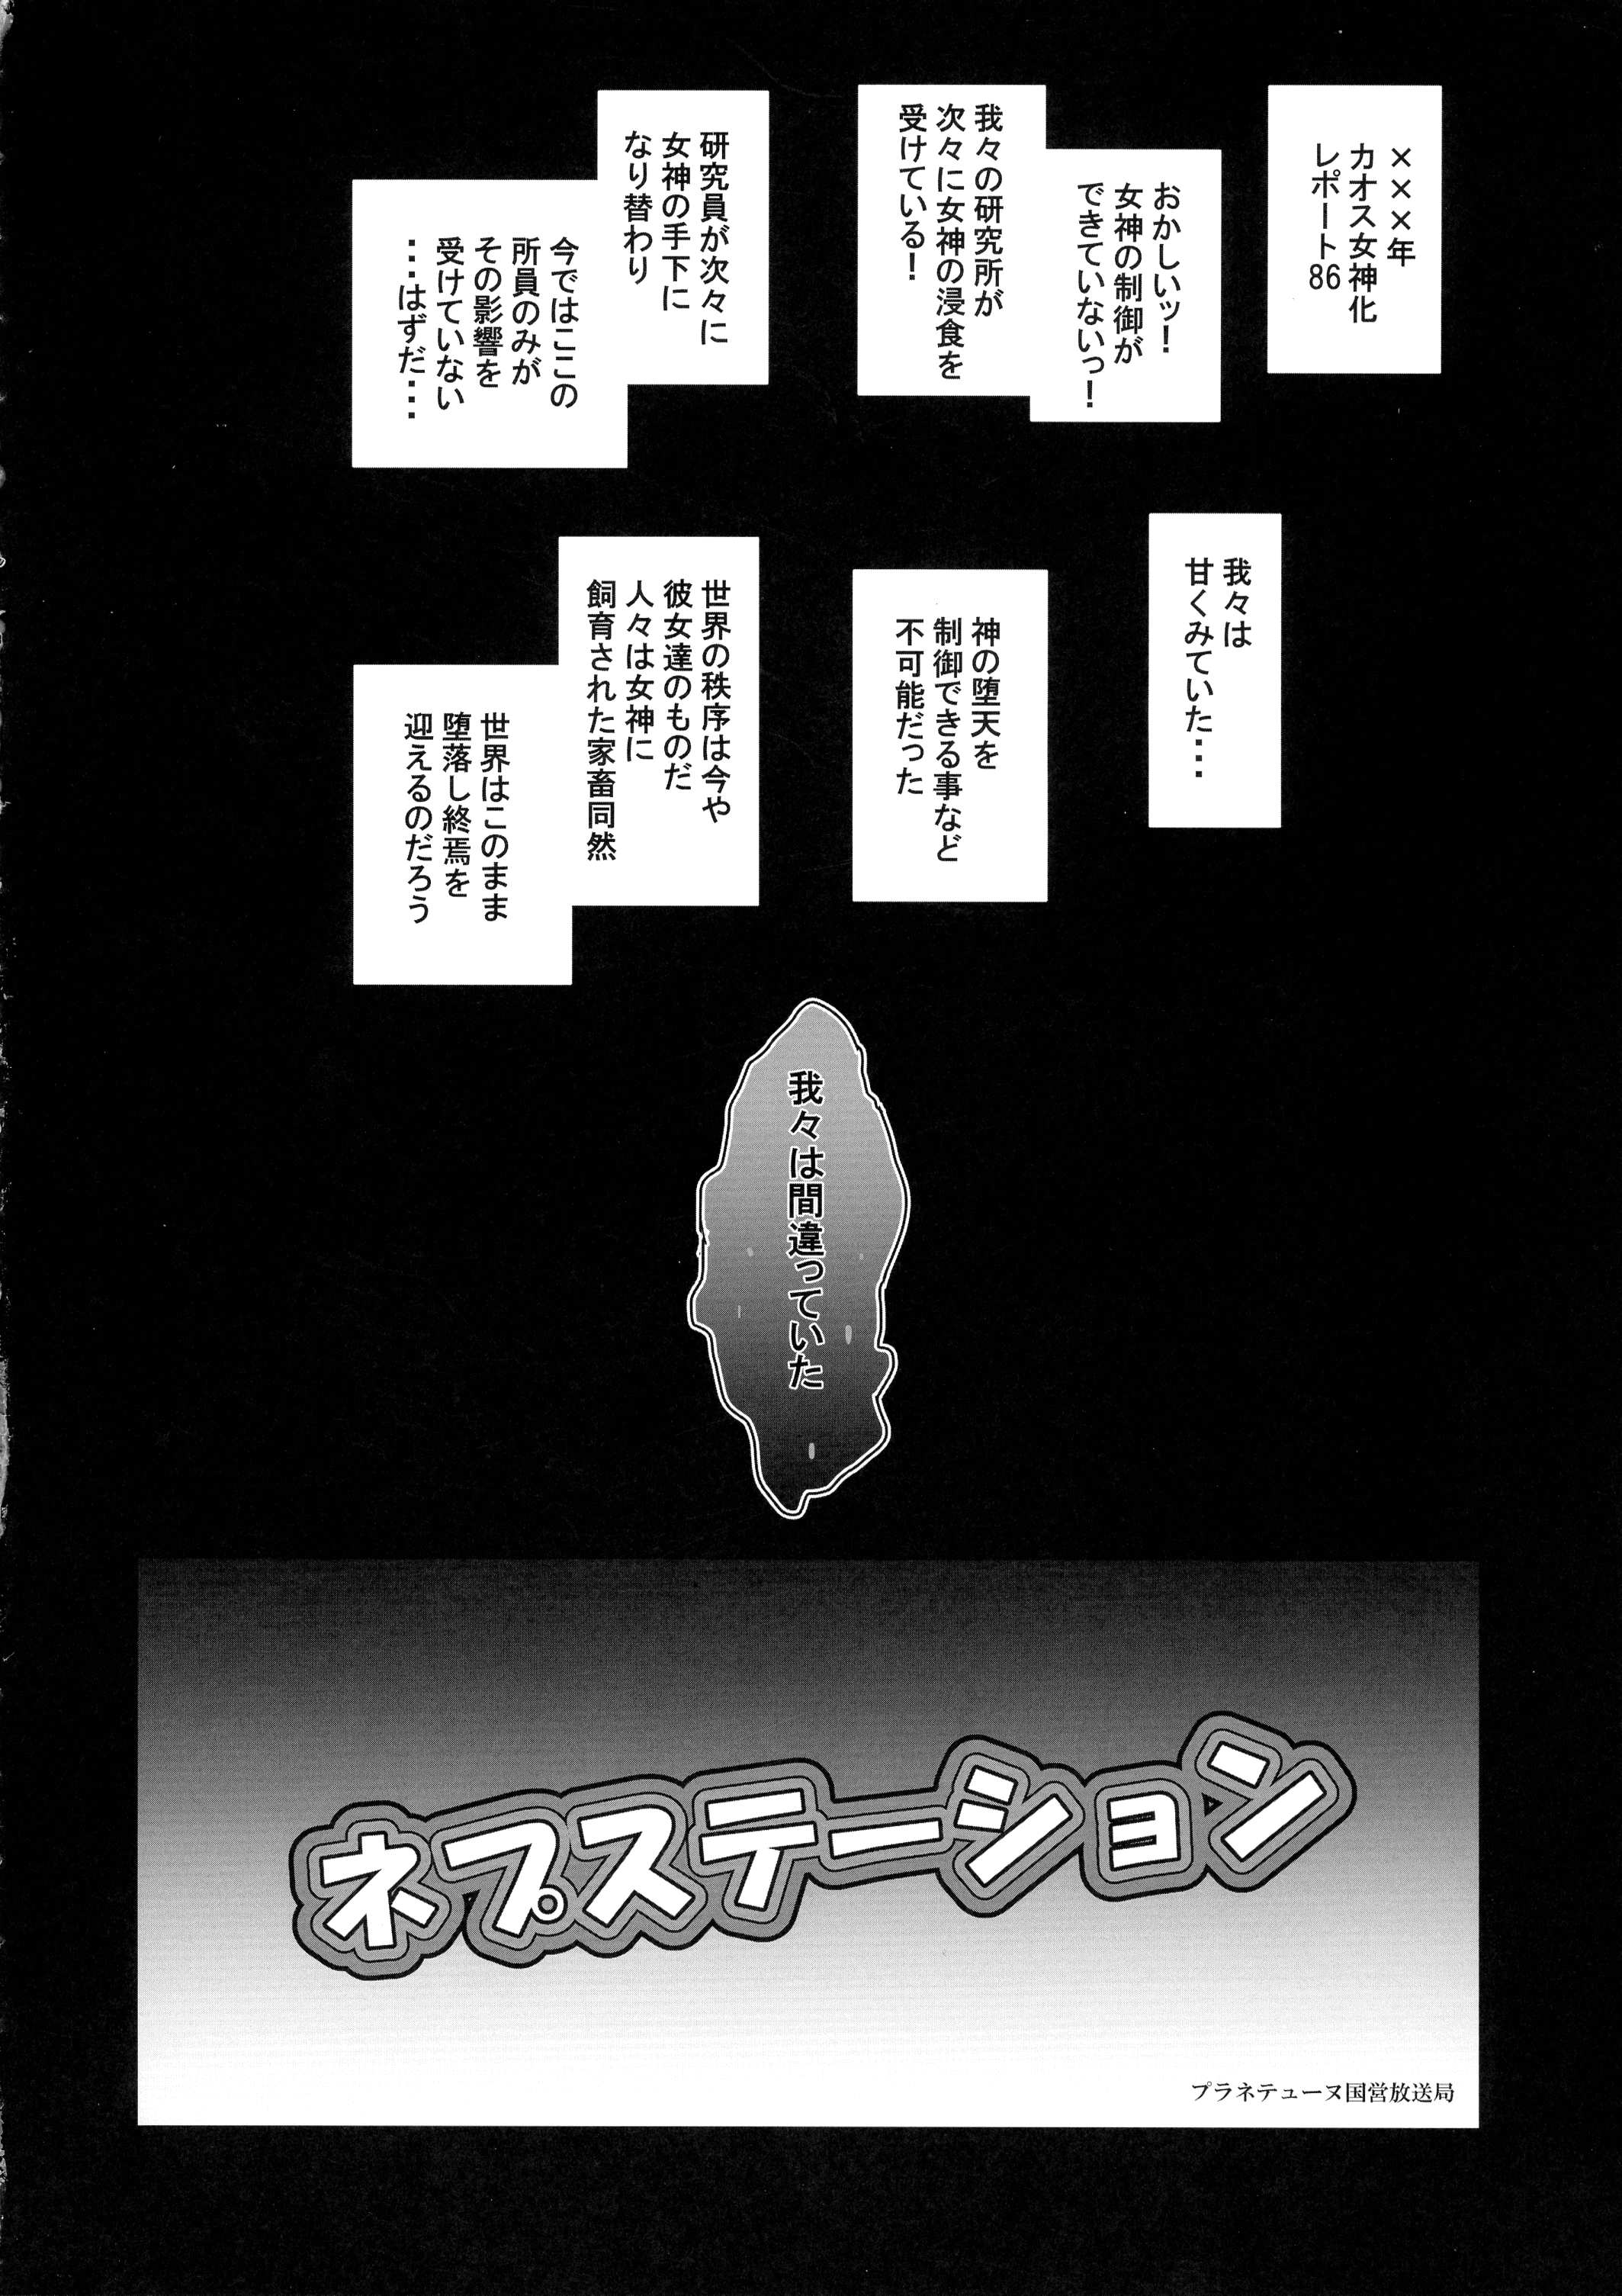 ×××年
カオス女神化
レポート86
おかしいッ！
女神の制御が
できていないっ！
我々の研究所が
次々に女神の浸食を
受けている！
研究員が次々に
女神の手下に
なり替わり
今ではここの
所員のみが
その影響を
受けていない
・・・はずだ・・・・
我々は
甘くみていた・・・
神の堕天を
制御できる事など
不可能だった
世界の秩序は今や
彼女達のものだ
人々は女神に
飼育された家畜同然
世界はこのまま
堕落し終焉を
迎えるのだろう
我々は間違っていた
ネプステーション
プラネテューヌ国営放送局